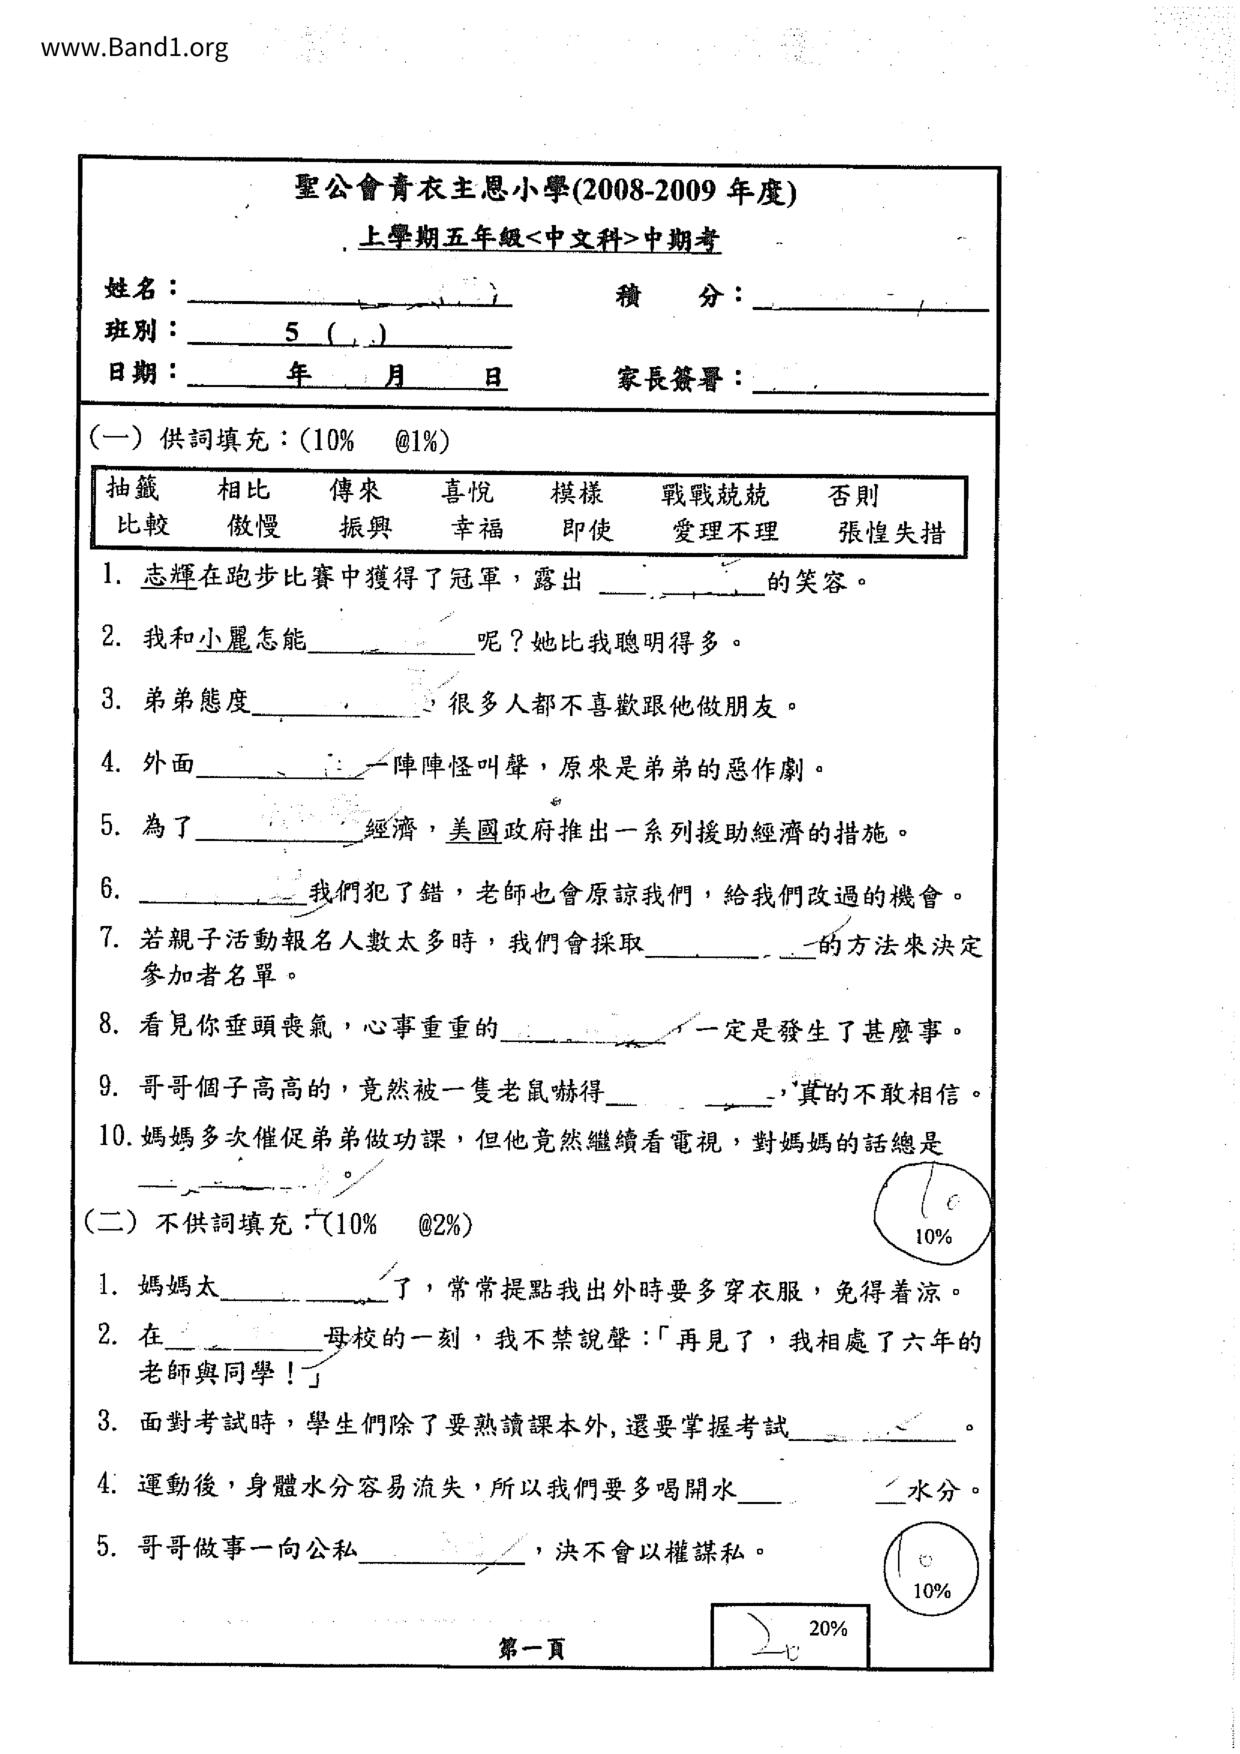 www.Band1.org
聖公會青衣主恩小學(2008-2009 年度)
上學期五年級<中文科>中期考
姓名：
積 分：
班別： 5 ( )
日期： 年 月 日
家長簽署：
(一) 供詞填充：(10% @1%)
抽籤 相比 傳來 喜悅 模樣 戰戰兢兢 否則
比較 傲慢 振興 幸福 即使 愛理不理 張惶失措
1. 志輝在跑步比賽中獲得了冠軍，露出 ____________的笑容。
2. 我和小麗怎能____________呢？她比我聰明得多。
3. 弟弟態度____________，很多人都不喜歡跟他做朋友。
4. 外面____________一陣陣怪叫聲，原來是弟弟的惡作劇。
5. 為了____________經濟，美國政府推出一系列援助經濟的措施。
6. ____________我們犯了錯，老師也會原諒我們，給我們改過的機會。
7. 若親子活動報名人數太多時，我們會採取____________的方法來決定
參加者名單。
8. 看見你垂頭喪氣，心事重重的____________，一定是發生了甚麼事。
9. 哥哥個子高高的，竟然被一隻老鼠嚇得____________，真的不敢相信。
10. 媽媽多次催促弟弟做功課，但他竟然繼續看電視，對媽媽的話總是
____________。
10
10%
(二) 不供詞填充：(10% @2%)
1. 媽媽太____________了，常常提點我出外時要多穿衣服，免得着涼。
2. 在____________母校的一刻，我不禁說聲：「再見了，我相處了六年的
老師與同學！」
3. 面對考試時，學生們除了要熟讀課本外，還要掌握考試____________。
4. 運動後，身體水分容易流失，所以我們要多喝開水____________水分。
5. 哥哥做事一向公私____________，決不會以權謀私。
10
10%
20
20%
第一頁